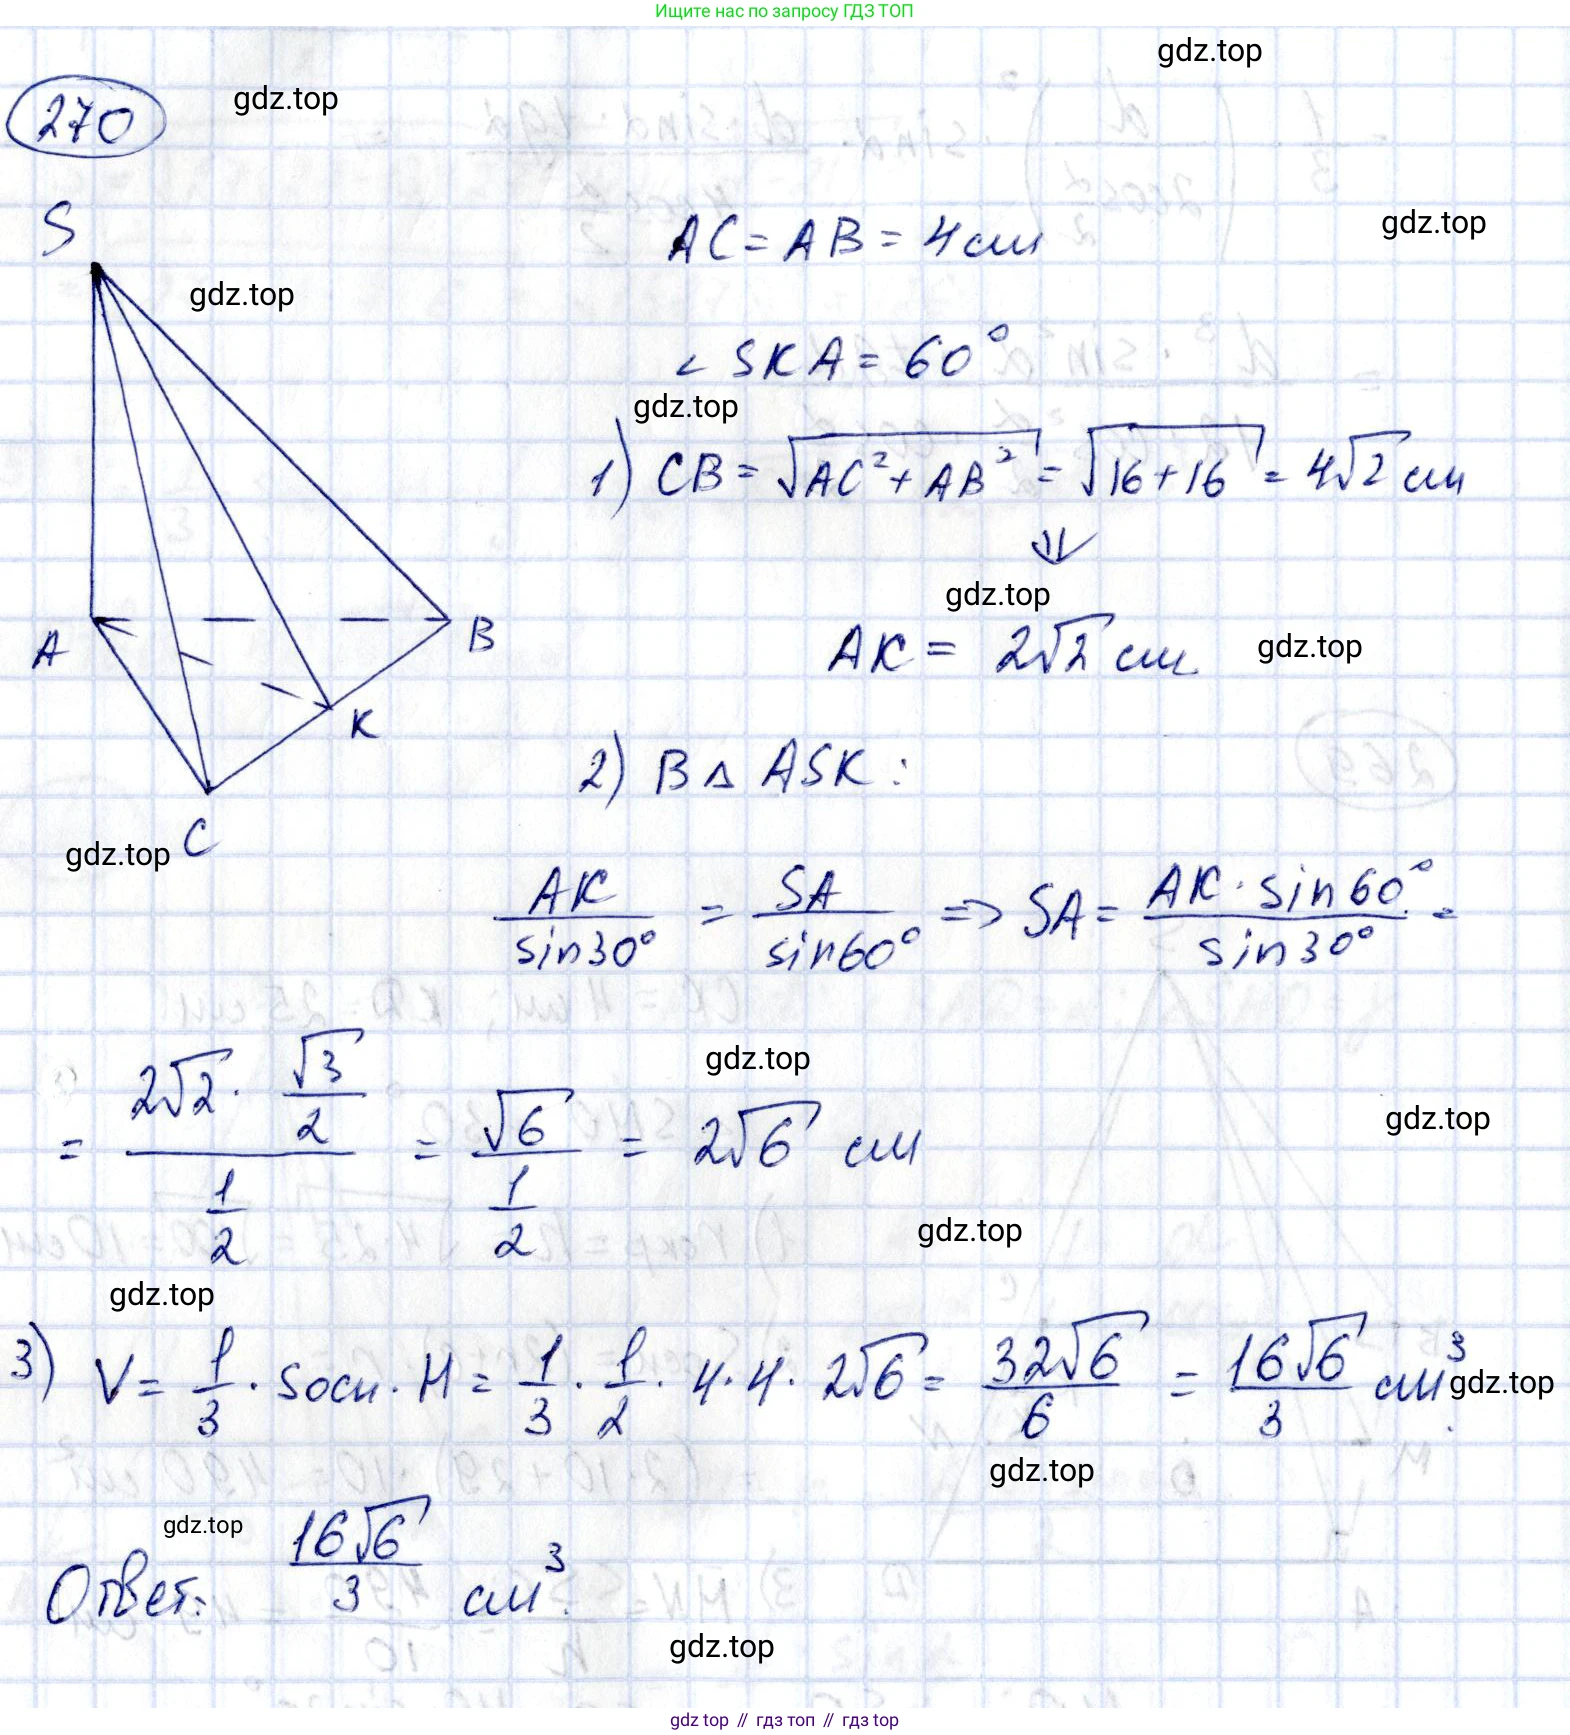 Ищите нас по запросу ГДЗ ТОП
gdz.top
270
gdz.top
S
AC = AB = 4 см
gdz.top
gdz.top
∠ SKA = 60°
gdz.top
1) CB = √(AC² + AB²) = √(16 + 16) = 4√2 см
⇓
gdz.top
A
B
AK = 2√2 см
gdz.top
K
2) В △ ASK :
gdz.top
C
AK / sin30° = SA / sin60° => SA = AK · sin60° / sin30° =
gdz.top
= (2√2 · √3/2) / (1/2) = √6 / (1/2) = 2√6 см
gdz.top
gdz.top
gdz.top
3) V = 1/3 · Sосн · H = 1/3 · 1/2 · 4 · 4 · 2√6 = 32√6 / 6 = 16√6 / 3 см³.
gdz.top
gdz.top
gdz.top
Ответ: 16√6 / 3 см³.
gdz.top
gdz top // гдз топ // гдз top